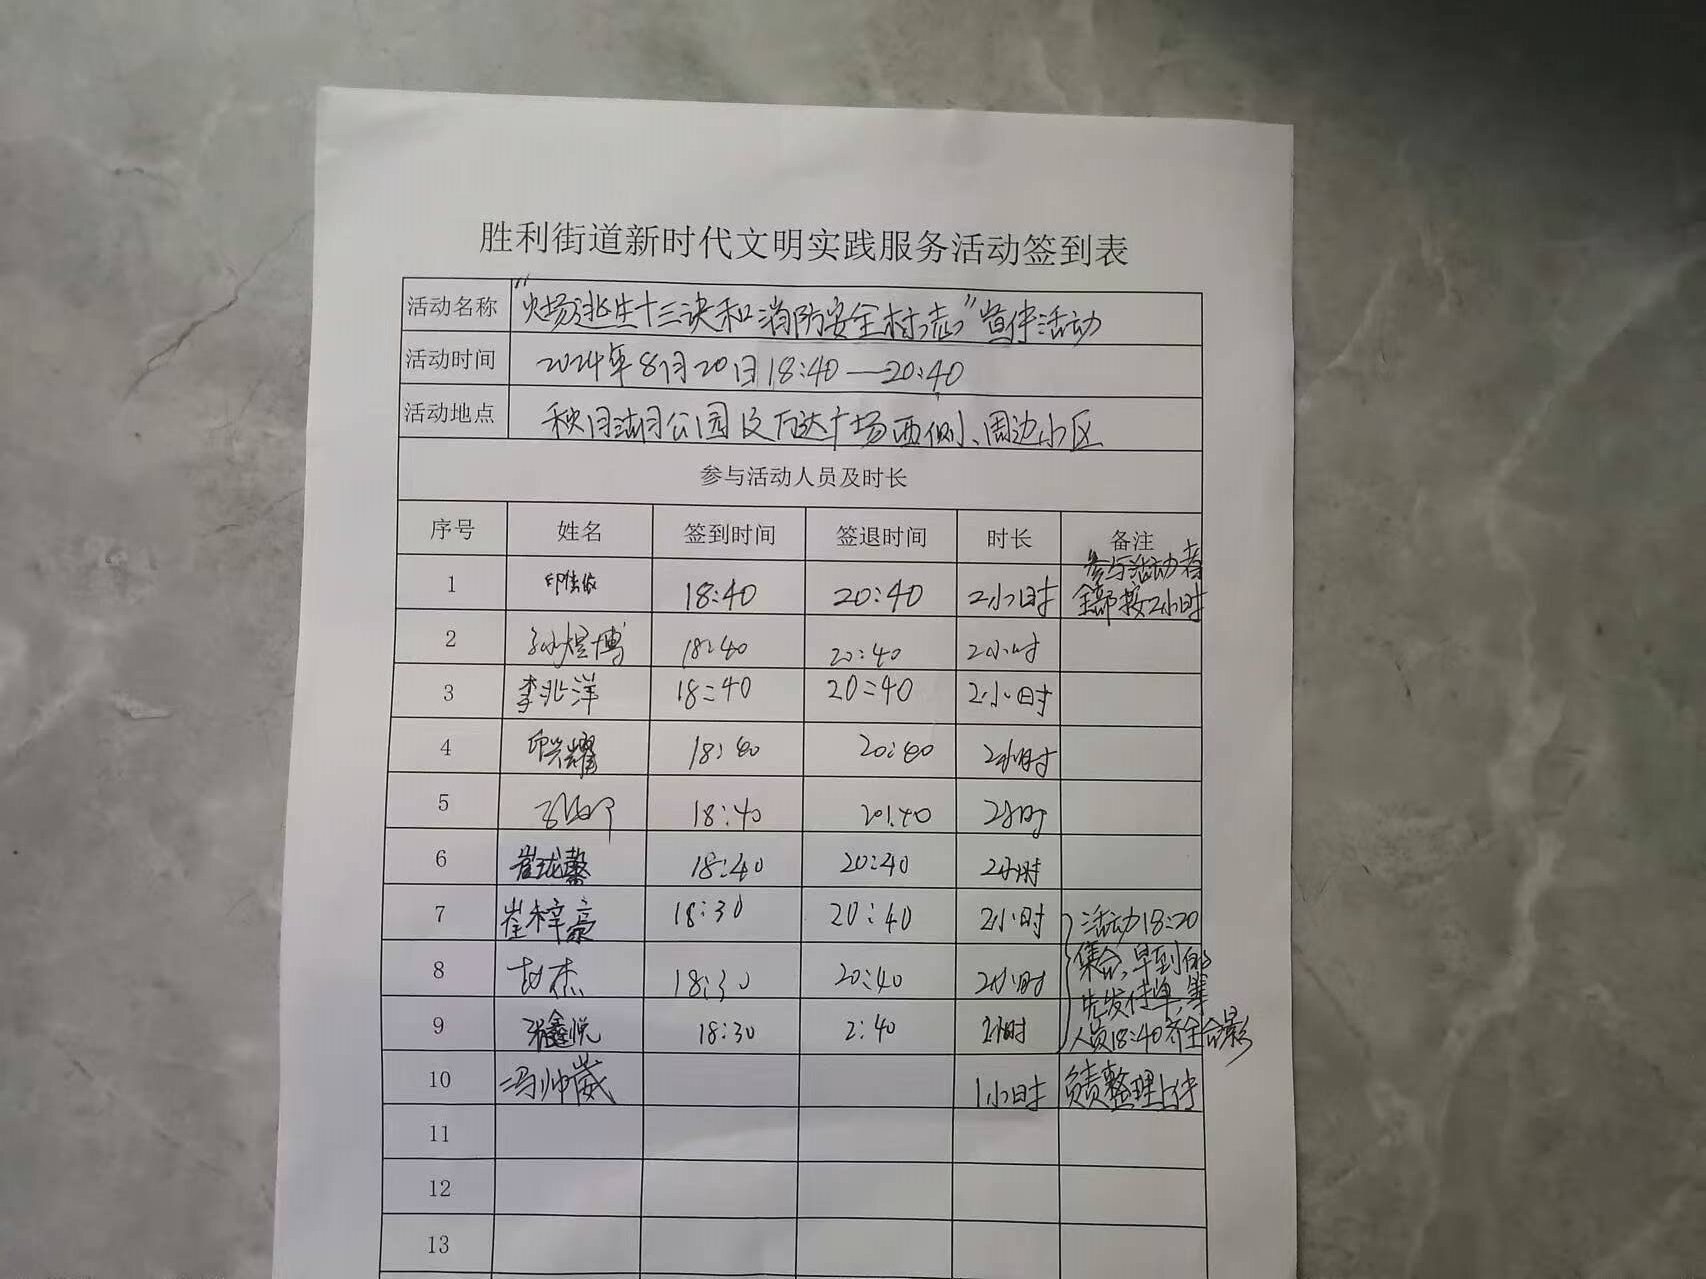 胜利街道新时代文明实践服务活动签到表
活动名称 "火场逃生十三诀和消防安全标志"宣传活动
活动时间 2024年8月20日18:40—20:40
活动地点 秋月湖公园及万达广场西侧、周边小区
参与活动人员及时长
序号 姓名 签到时间 签退时间 时长 备注
1 18:40 20:40 2小时 参与活动者
全部按2小时
2 孙煜博 18:40 20:40 2小时
3 李兆洋 18:40 20:40 2小时
4 印兴耀 18:40 20:40 2小时
5 18:40 20:40 2小时
6 崔珑馨 18:40 20:40 2小时
7 崔梓豪 18:30 20:40 2小时 活动18:20
集合,早到的
8 赵杰 18:30 20:40 2小时 先发传单,等
9 张鑫悦 18:30 2:40 2小时 人员18:40齐全合影
10 冯帅崴 1小时 负责整理上传
11
12
13